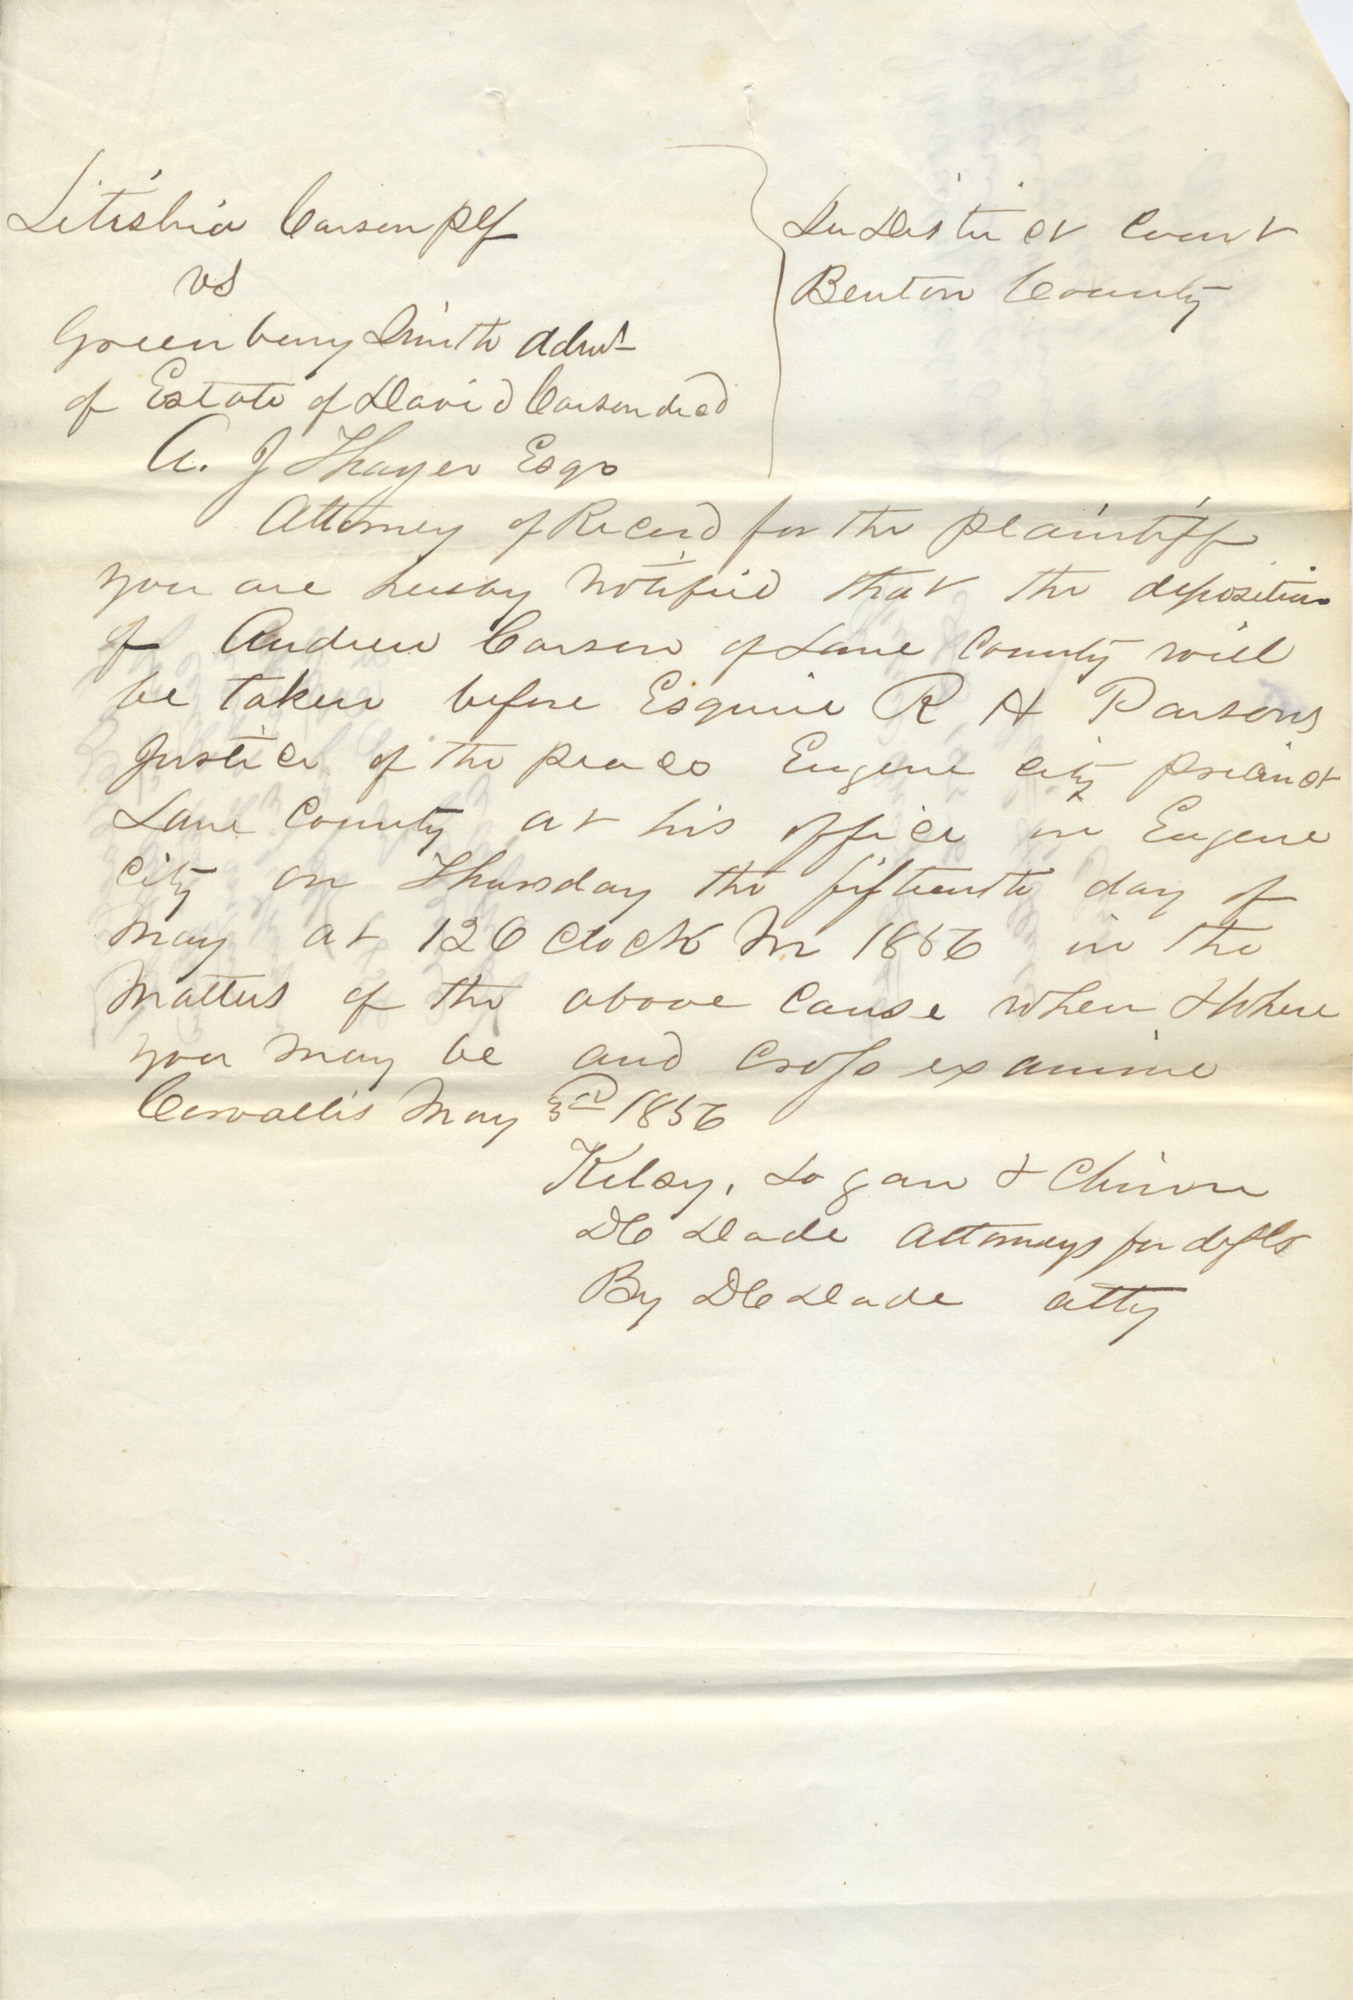 Litishia Carson plf
vs
Greenberry Smith Admt
of Estate of David Carson decd
In District Court
Benton County
A. J Thayer Esqr
Attorney of Record for the plaintiff
you are hereby notified that the deposition
of Andrew Carson of Lane County will
be taken before Esquire R H Parsons
Justice of the peace Eugene city precinct
Lane County at his office in Eugene
city on Thursday the fifteenth day of
May at 12 O Clock M 1856 in the
Matters of the above cause when & Where
you may be and cross examine
Corvallis May 3rd 1856
Kelsy, Logan & Chinn
D C Dade Attorneys for defts
By D C Dade atty